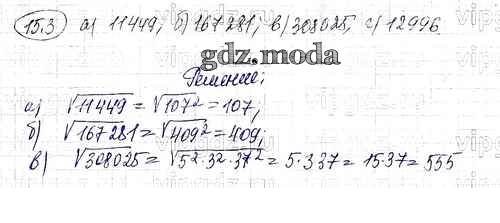 15.3 а) 11449; б) 167281; в) 308025; с) 12996
gdz.moda
Решение:
а) √11449 = √107² = 107;
б) √167281 = √409² = 409;
в) √308025 = √5²·3²·37² = 5·337 = 15·37 = 555